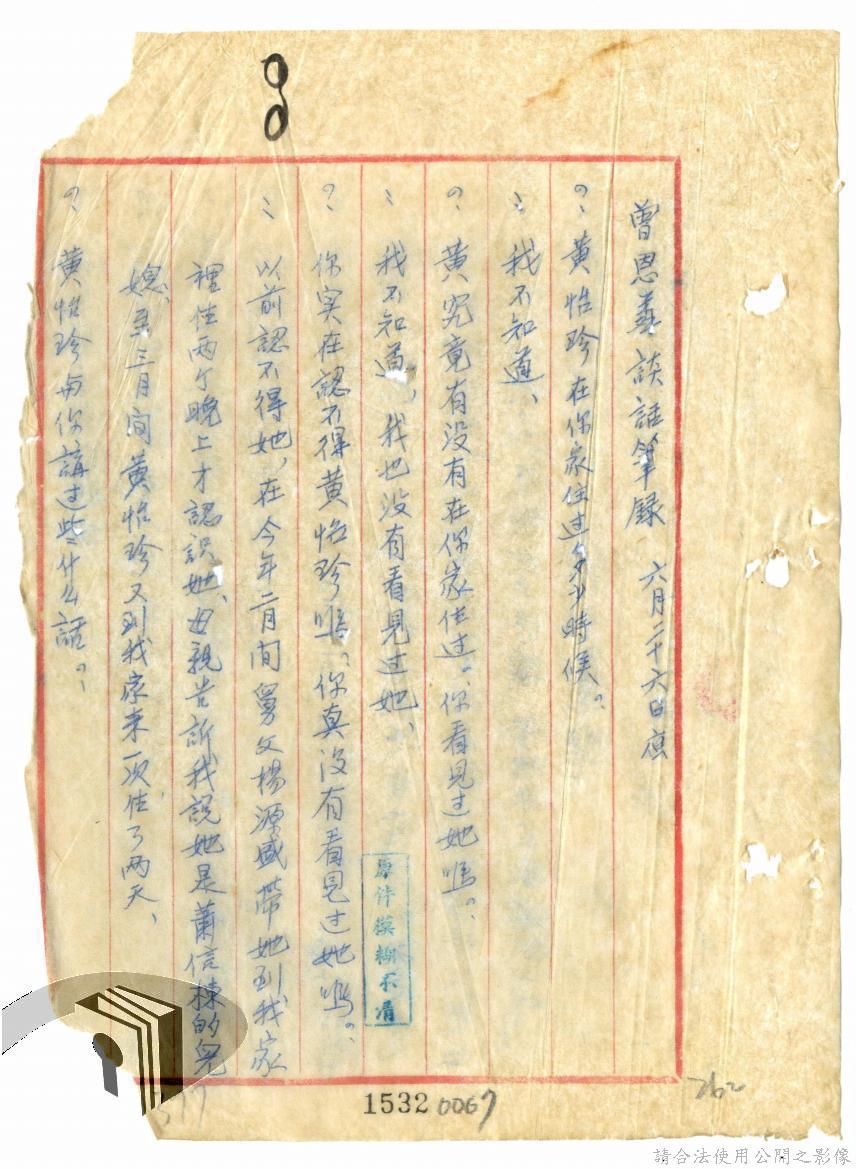 曾恩義談話筆錄 六月二十六日
?: 黃怡珍在你家住过多少時候。
: 我不知道、
?: 黃究竟有没有在你家住过。你看見过她嗎?
: 我不知道、我也没有看見过她、
?: 你実在認不得黃怡珍嗎。你真没有看見过她嗎。
: 以前認不得她,在今年二月間舅父楊源盛帶她到我家
裡住两个晚上才認識她、母親告訴我說她是蕭信棟的兒
媳、至三月間黃怡珍又到我家来一次住了两天、
?: 黃怡珍与你講过些什么話?
原件模糊不清
1532 0067
762
577
請合法使用公開之影像